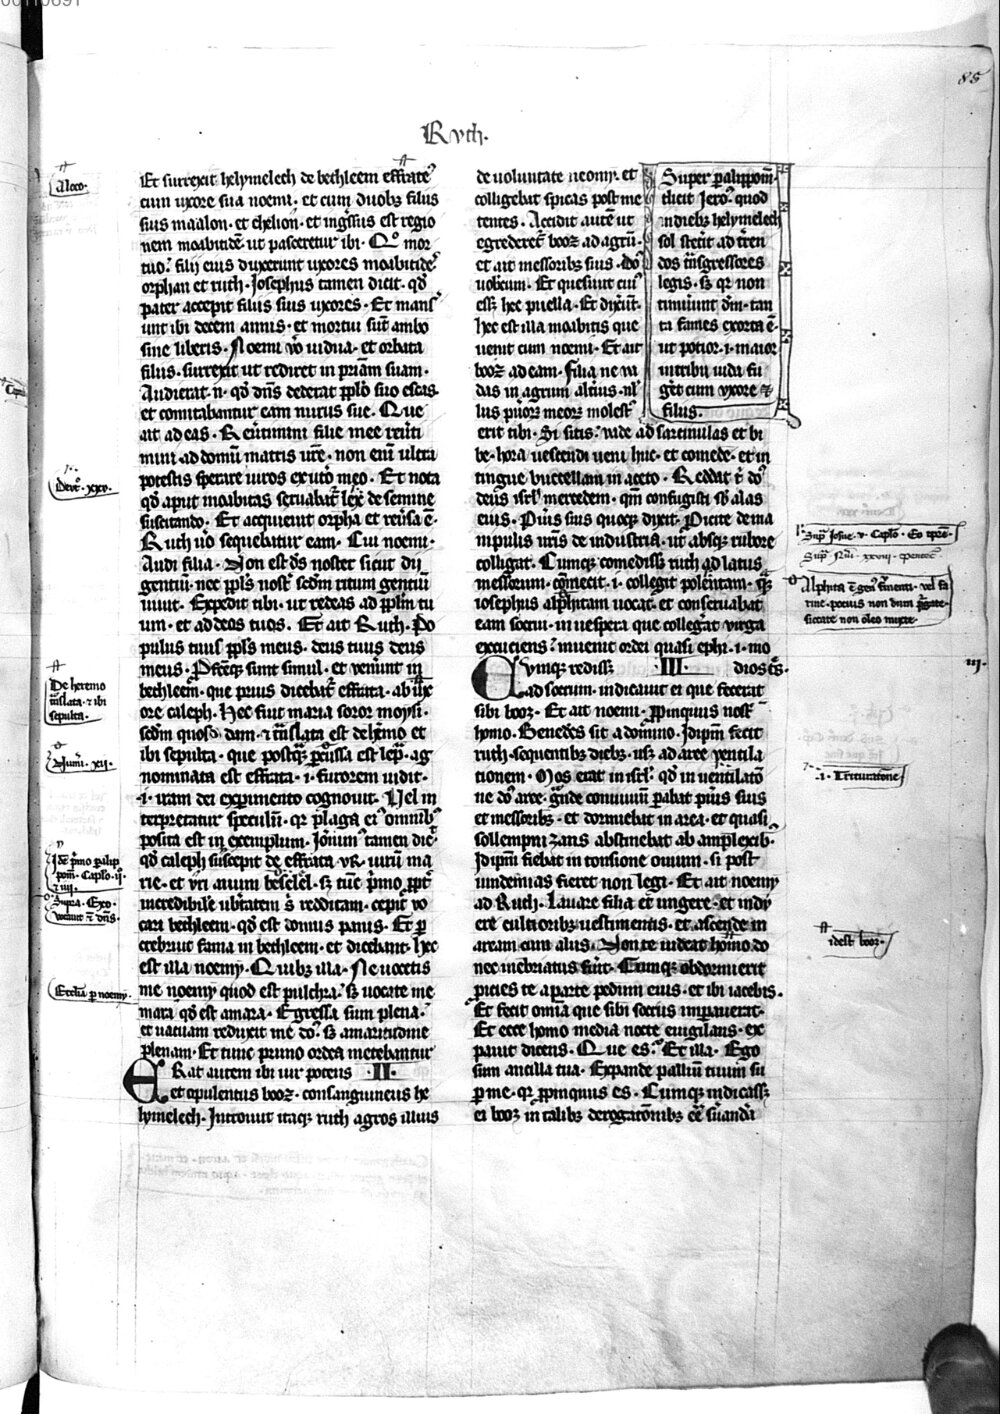 85
Ruth.
Aloco.
Et surrexit helymelech de bethleem effrate
cum uxore sua noemi. et cum duobꝫ filiis
suis maalon. et chelion. et ingress' est regio
nem moabitidē. ut pasceretur ibi. Quo mor
tuo. filii eius duxerunt uxores moabitides
orphan et ruth. Josephus tamen dicit. qd̕
pater accepit filiis suis uxores. Et mans
unt ibi decem annis. et mortui sūt ambo
sine liberis. Noemi v̊o uidua. et orbata
filiis. surrexit ut rediret in pr̄iam suam.
Audierat. n. qd̕ dn̄s dederat pplo suo escas.
et comitabantur eam nurus sue. Que
ait ad eas. Reūtimini filie mee reūti
mini ad domū matris ur̄e. non enī ultra
potestis sperare uiros ex ut'o meo. Et nota
qd̕ aput moabitas seruabat' lex de semine
suscitando. Et acquieuit orpha et reūsa ē.
Ruth u̕o sequebatur eam. Cui noemi.
Audi filia. Non est ds̄ noster sicut dii
gentiū. nec ppls nost' scdm ritum gentiū
uiuit. Expedit tibi. ut redeas ad pplm tu
um. et ad deos tuos. Et ait Ruth. Po
pulus tuus ppls meus. deus tuus deus
meus. Pfecteqꝫ sunt simul. et uenūt in
bethleem. que prius dicebat' effrata. ab ux
ore caleph. Hec fuit maria soror moysi.
scdm quosdam. ⁊ tn̄slata est de hemo et
ibi sepulta. que postqꝫ pcussa est lepra. ag
nominata est effrata. i. furorem uidit.
.i. iram dei experimento cognouit. Uel in
terpretatur speculū. qr plaga ei' omnibꝫ
posita est in exemplum. Jōnim' tamen dic'
qd̕ caleph suscepit de effrata vr. uirū ma
rie. et vri auum beselel. sꝫ tūc p̕mo ppt'
incredibilē ubtatem s̄ redditam. cepit vo
cari bethleem. qd̕ est domus panis. Et p
crebruit fama in bethleem. et dicebant. hec
est illa noemy. Quibꝫ illa. Ne uocetis
me noemy quod est pulchra. sꝫ uocate me
mara qd̕ est amara. Egressa sum plena.
et uacuam reduxit me dn̄s. sꝫ amaritudine
plenam. Et tunc primo ordea metebantur
ERat autem ibi uir potens .II.
et opulentus booz. consanguineus he
lymelech. Introiuit itaqꝫ ruth agros illius
Deut'. xxv.
De heremo
tn̄slata. ⁊ ibi
sepulta.
Num̄. xii.
Id' p̕mo palip
pom̄. Caplo. ii.
⁊ iiii.
Supra. Exo.
Ecclīa p noemy.
de uoluntate neomy. et
colligebat spicas post me
tentes. Accidit autē ut
egrederet' booz ad agrū.
et ait messoribꝫ suis. Dn̄s
uobcum. Et quesiuit cui'
essꝫ hec puella. Et dixūt.
hec est illa moabitis que
uenit cum noemi. Et ait
booz ad eam. filia ne ua
das in agrum alterius. nl'
lus puor̄ meor̄ molest'
erit tibi. Si sitis. uade ad sarcinulas et bi
be. hora uescendi ueni huc. et comede. et in
tingue bucellam in aceto. Reddat t̄ dn̄s
deus isrl̄ mercedem. qm̄ confugisti sb̄ alas
eius. Pueris suis quoqꝫ dixit. Picite de ma
nipulis uris de industria. ut absqꝫ rubore
colligat. Cumqꝫ comedissꝫ ruth ad latus
messorum. ꝯmecit. i. collegit polentam. qꝫ
iosephus alphitam uocat. et conseruabat
eam socrui. in uespera que collegat virga
excuciens. inuenit ordei quasi ephi. i. mo
CUmqꝫ redissꝫ .III. dios ts.
ad socrum. indicauit ei que fecerat
sibi booz. Et ait noemi. Ppinquus nost'
homo. Benedcs sit a domino. Idipm̄ fecit
ruth. sequentibꝫ diebꝫ. usqꝫ ad aree uentila
tionem. Mos erat in isrl̄. qd̕ in uentilatō
ne dn̄s aree. grande conuiuiū pabat pueris suis
et messoribꝫ. et dormiebat in area. et quasi
sollempnizans abstinebat ab amplexibꝫ.
Idipm̄ fiebat in tonsione ouium. si post
uindemias fieret non legi. Et ait noemy
ad Ruth. Lauare filia et ungere. et indu
ere cultioribꝫ uestimentis. et ascende in
aream cum aliis. Non te uideat homo do
nec inebriatus fūit. Cumqꝫ obdormierit
picies te a parte pedum eius. et ibi iacebis.
Et fecit omīa que sibi socrus imperauerat.
Et ecce homo media nocte euigilans. ex
pauit dicens. Que es. Et illa. Ego
sum ancilla tua. Expande pallium tuum su
per me. qr ppinquus es. Cumqꝫ indicassꝫ
ei booz in talibꝫ derogatōnibꝫ
Super palippom̄.
dicit Jero. quod
in diebꝫ helymelech
sol stetit ad tren
dos tn̄sgressores
legis. sꝫ qr non
timuūnt dn̄m. tan
ta fames exorta ē.
ut potior. i. maior
in tribu iuda fu
geret cum uxore ⁊
filiis.
Sup̄ Josue. v. Caplo. Eo tpre.
Sup̄ Nūi. xxviii.
Alphita ē gen' frumenti. uel fa
rine. pocius non dum
siccate non oleo mixte.
III.
.i. Trituratōne
idest booz.